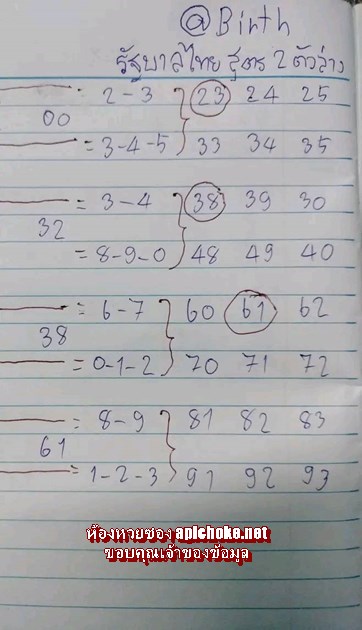 @Birth
รัฐบาลไทย สูตร 2 ตัวล่าง
2-3 23 24 25
00
= 3-4-5 33 34 35
= 3-4 38 39 30
32
= 8-9-0 48 49 40
= 6-7 60 61 62
38
= 0-1-2 70 71 72
= 8-9 81 82 83
61
= 1-2-3 91 92 93
ห้องหวยซอง apichoke.net
ขอบคุณเจ้าของข้อมูล